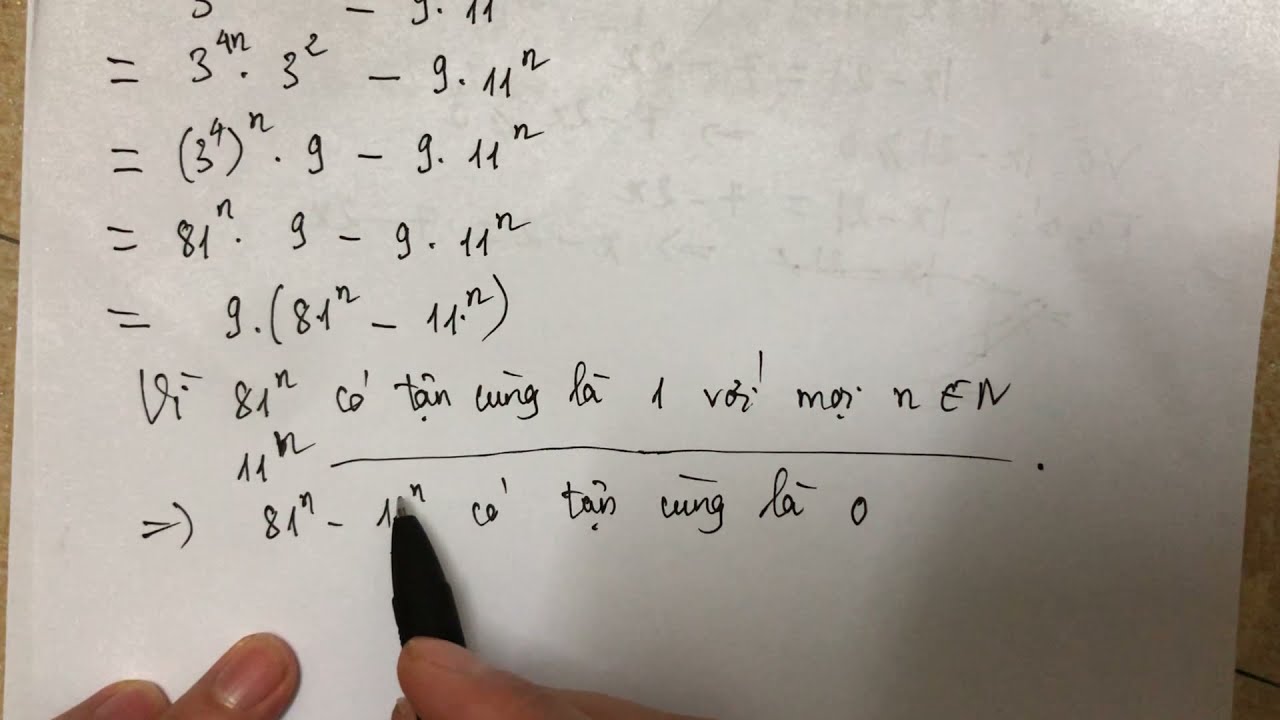 3 - 9.11
= 3^{4n} . 3^2 - 9 . 11^n
= (3^4)^n . 9 - 9 . 11^n
= 81^n . 9 - 9 . 11^n
= 9.(81^n - 11^n)
Vì 81^n có tận cùng là 1 với mọi n ∈ N
11^n ———————— .
=> 81^n - 11^n có tận cùng là 0